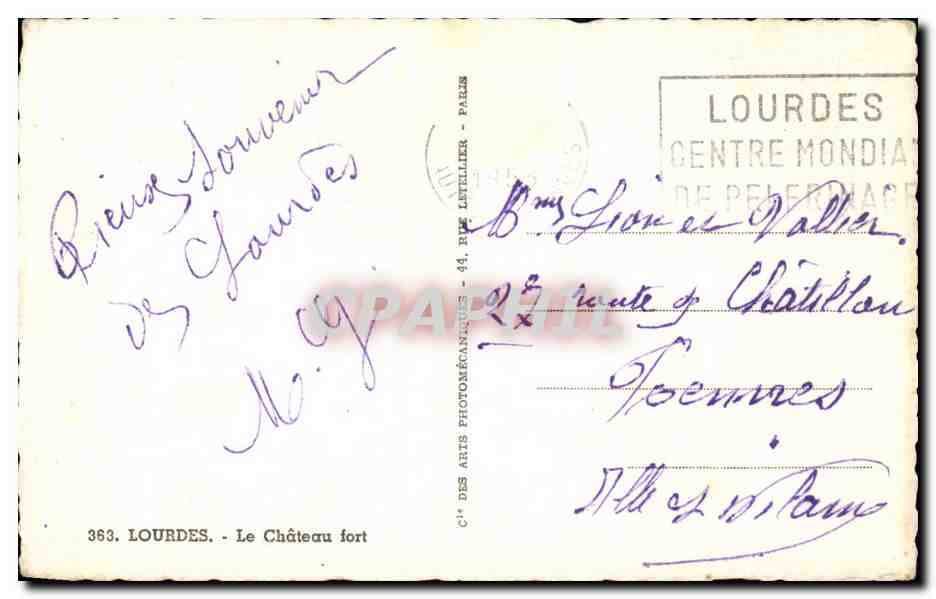 Pieux Souvenir
de Lourdes
M. G
363. LOURDES. - Le Château fort
Cie DES ARTS PHOTOMÉCANIQUES - 44, RUE LETELLIER - PARIS
LOURDES
CENTRE MONDIA
DE PELERINAGE
Lion et Vallier
route de Châtillon
Rennes
Ille et Vilaine
CPAPHIL